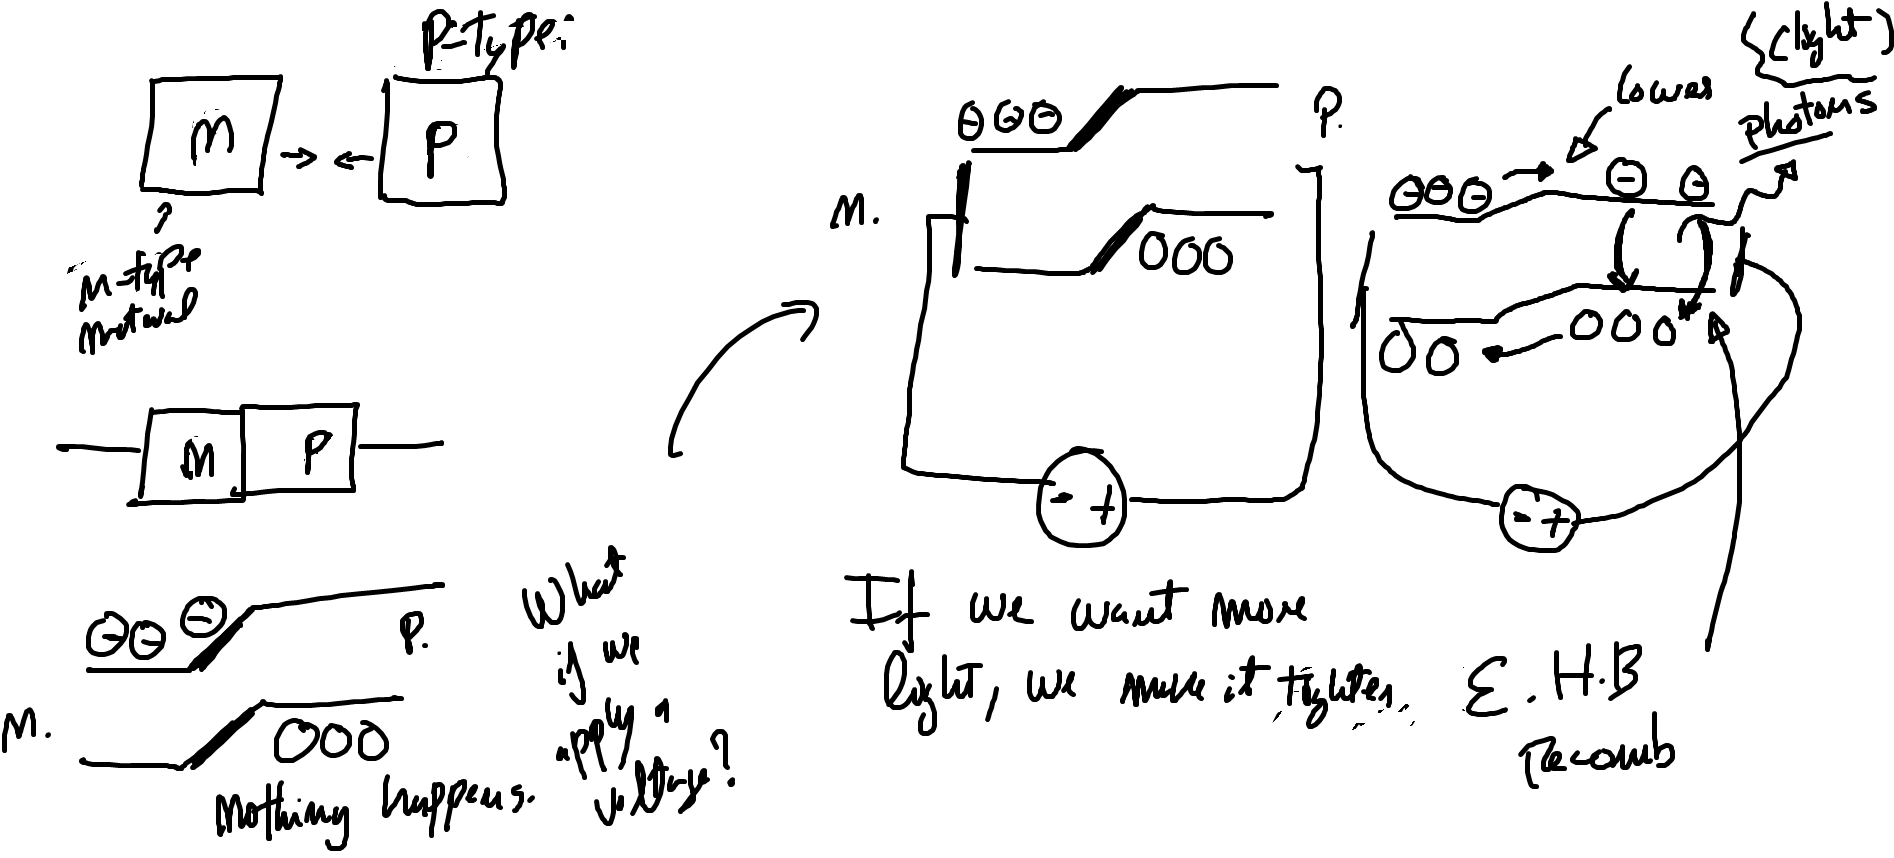 P-type
n
P
n-type
material
n
P
P.
n.
Nothing happens.
What
if we
apply a
voltage?
n.
P.
- +
If we want more
light, we make it tighter.
lower
(light)
photons
- +
E. H.B
recomb